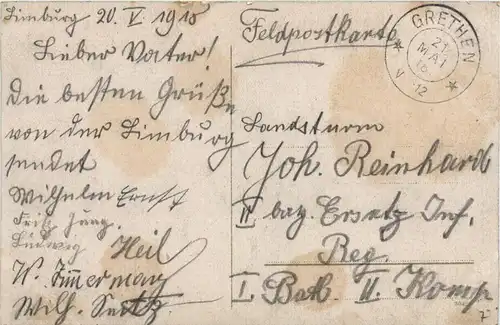 Limburg 20. V 1915
Lieber Vater!
Die besten Grüße
von der Limburg
sendet
Wilhelm Ernst
Fritz Jung.
Ludwig Heil
W. Zimmermann
Wilh. Seitz.
Feldpostkarte
GRETHEN
21
MAI
V 12
Landsturm
Joh. Reinhard
II bay. Ersatz Inf.
Reg.
I. Batl. II. Komp
7